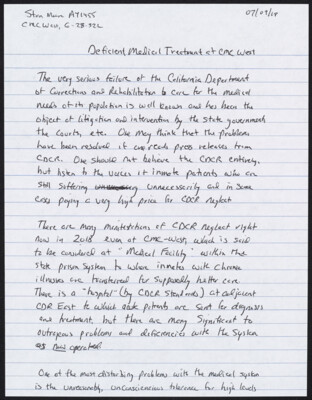 07/09/18
CMC West, G-28-32L
Deficient Medical Treatment at CMC West
The very serious failure of the California Department
of Corrections and Rehabilitation to care for the medical
needs of its population is well known and has been the
object of litigation and intervention by the state government,
the courts, etc. One may think that the problems
have been resolved if one reads press releases from
CDCR. One should not believe the CDCR entirely,
but listen to the voices of inmate patients who are
still suffering unnecessarily and in some
cases paying a very high price for CDCR neglect
There are many manifestations of CDCR neglect right
now in 2018 even at CMC-West, which is said
to be considered a "Medical Facility" within the
state prison system to where inmates with chronic
illnesses are transferred for supposedly better care.
There is a "hospital" (by CDCR standards) at adjacent
CDR East to which state patients are sent for diagnosis
and treatment, but there are many significant to
outrageous problems and deficiencies with the system
as operated
One of the most disturbing problems with the medical system
is the unreasonably, unconscienceous tolerance for high levels